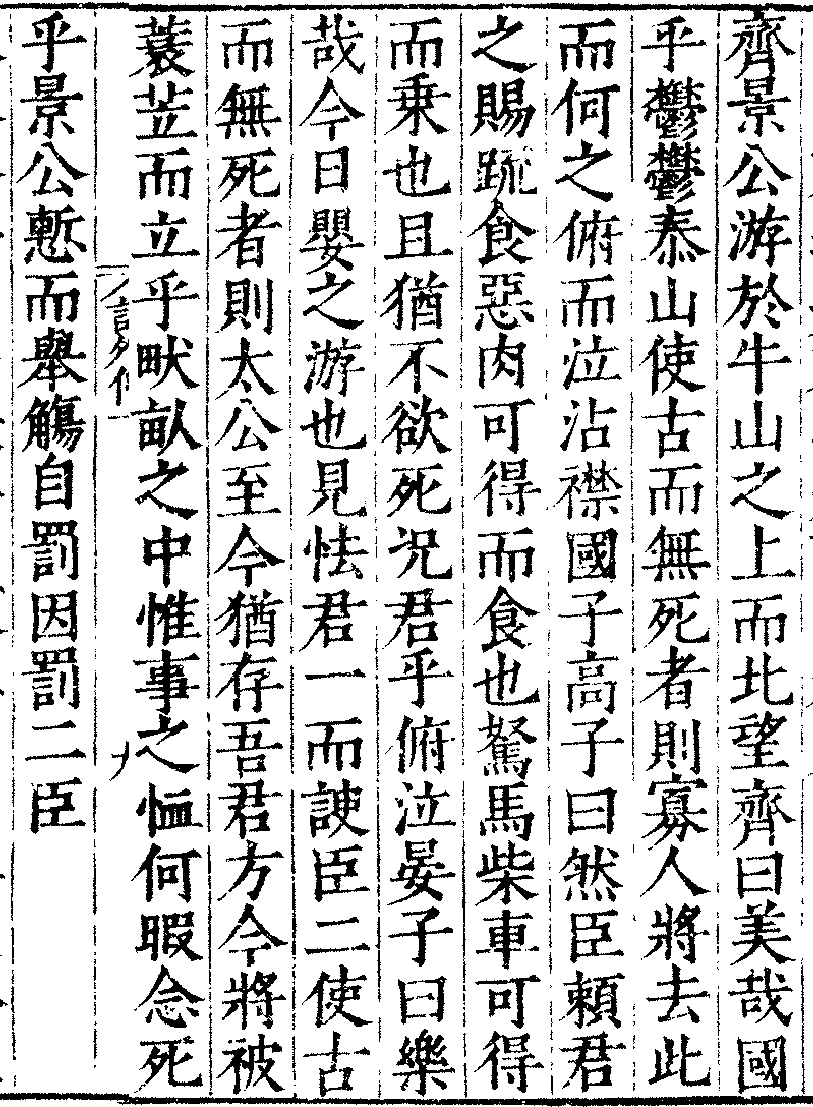 齊景公游於牛山之上而北望齊曰美哉國
乎鬱鬱泰山使古而無死者則寡人將去此
而何之俯而泣沾襟國子高子曰然臣賴君
之賜䟽食惡肉可得而食也駑馬柴車可得
而乗也且猶不欲死况君乎俯泣晏子曰樂
哉今日嬰之游也見怯君一而諛臣二使古
而無死者則太公至今猶存吾君方今將被
蓑苙而立乎畎畝之中惟事之恤何暇念死
乎景公慙而舉觴自罰因罰二臣